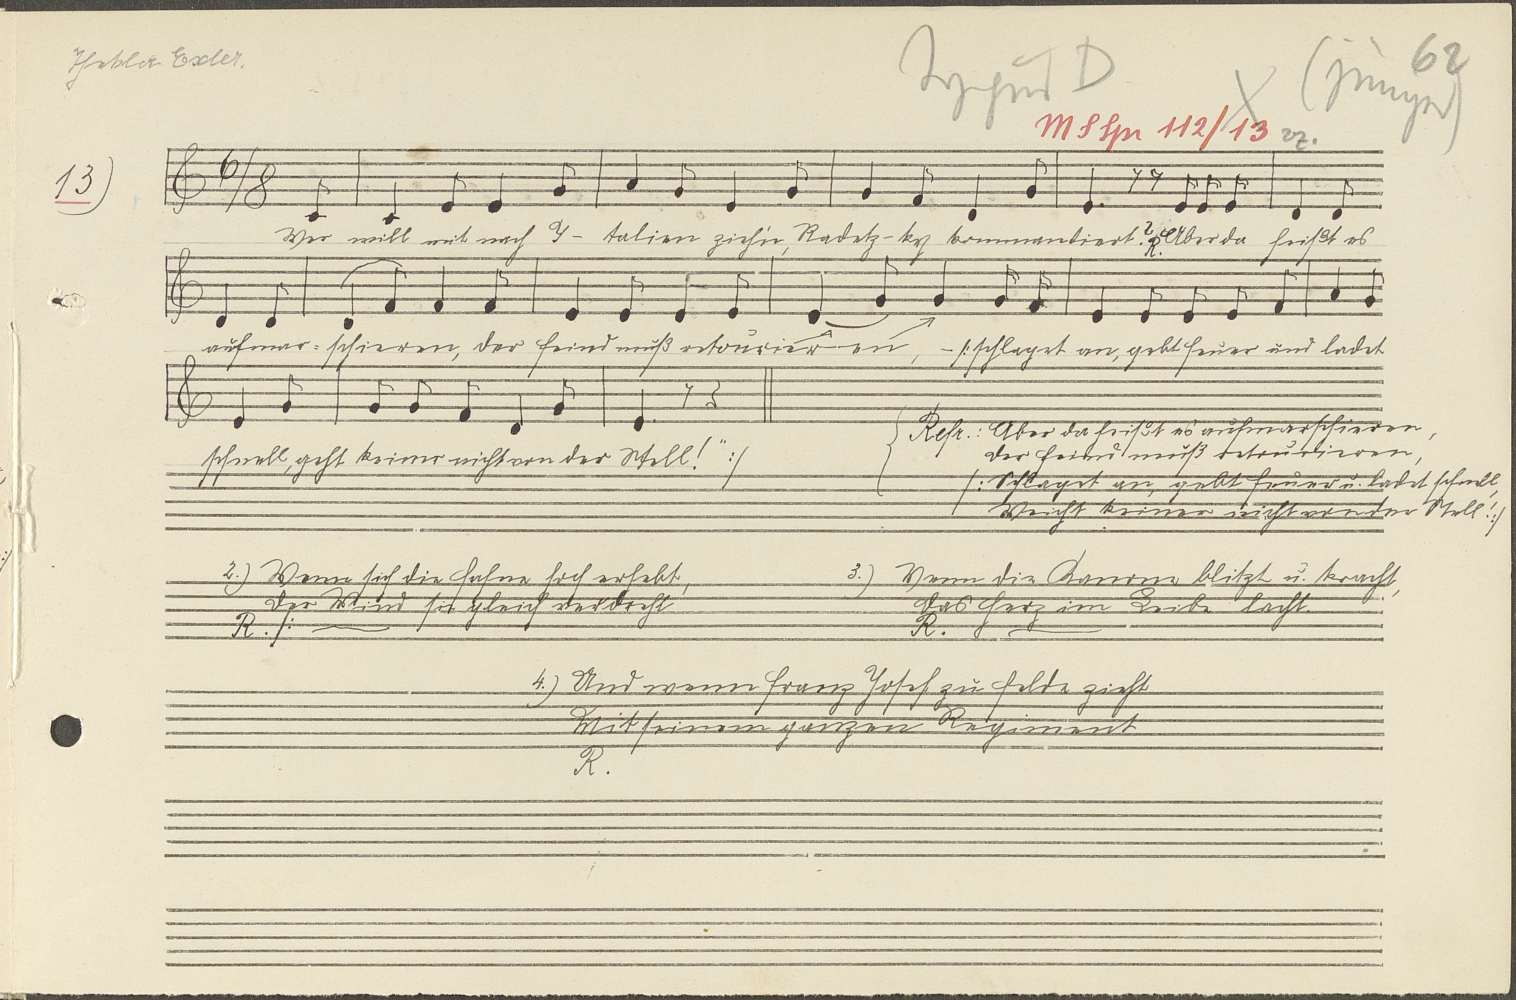 Thekla Exler.
D
62
(jünger)
MS Spr 112/13 vz.
13)
6/8
Wer will mit nach I-talien ziehn, Radetz-ky kommandiert? R. Aber da heißt es
aufmar-schieren, der Feind muß retourier-en, - /: schlaget an, gebt Feuer und ladet
schnell, geht keiner nicht von der Stell!" :/
Refr.: Aber da heißt es aufmarschieren,
der Feind muß retourieren,
/: Schlaget an, gebt Feuer u. ladet schnell,
Weicht keiner nicht von der Stell! :/
2.) Wenn sich die Fahne hoch erhebt,
Der Wind sie gleich verdreht
R. /:
3.) Wenn die Kanone blitzt u. kracht,
das Herz im Leibe lacht.
R.
4.) Und wenn Franz Josef zu Felde zieht
Mit seinem ganzen Regiment
R.